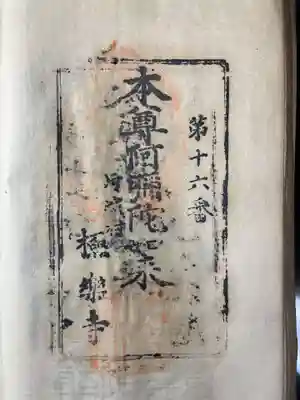 第十六番
本尊阿弥陀如来
極樂寺